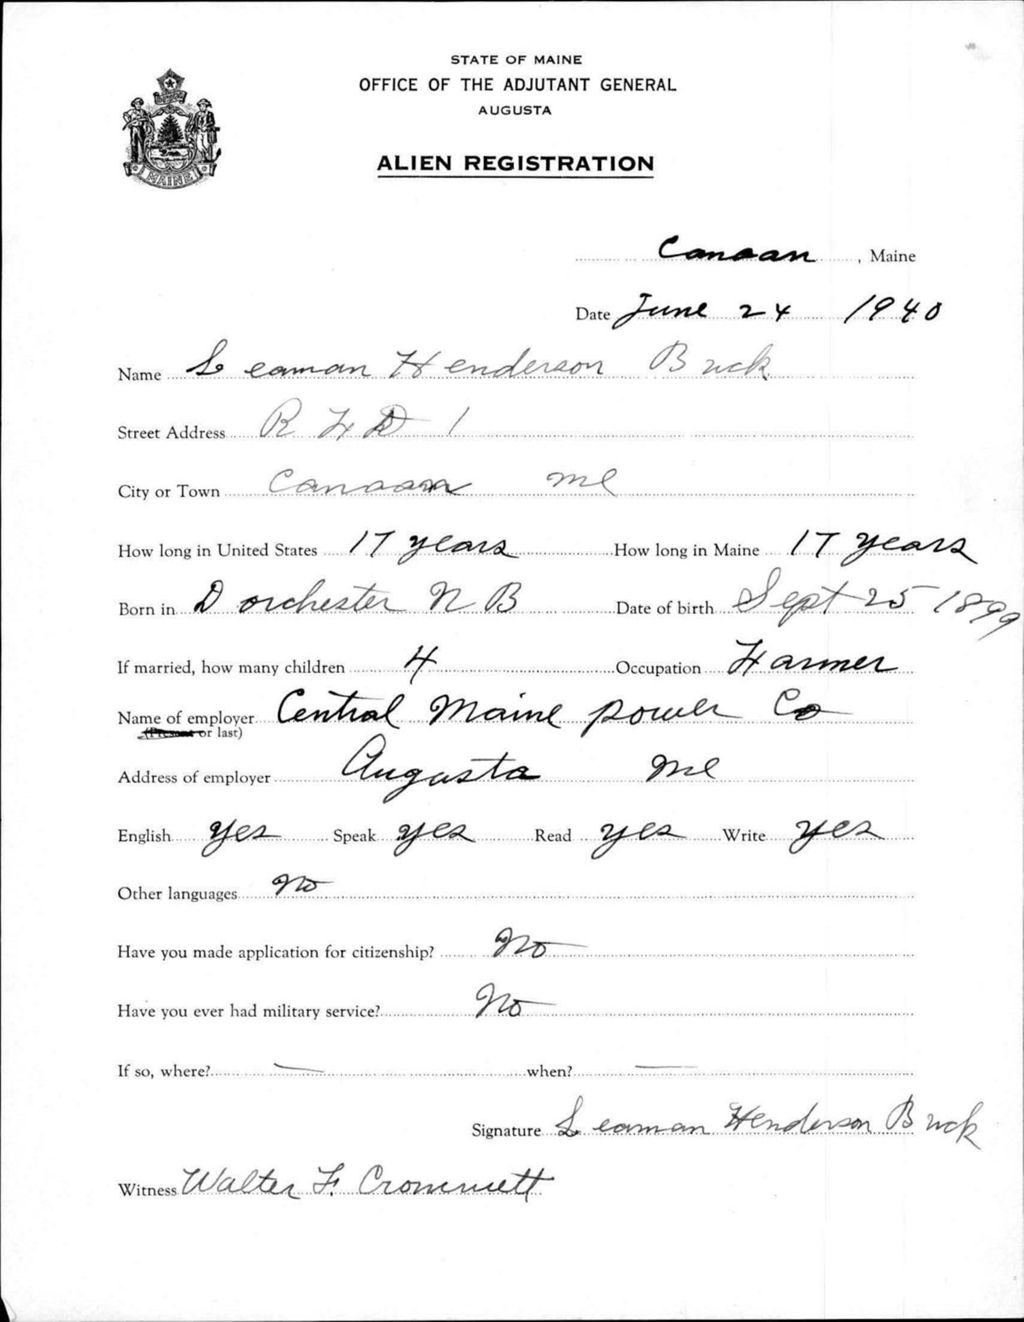 STATE OF MAINE
OFFICE OF THE ADJUTANT GENERAL
AUGUSTA
ALIEN REGISTRATION
MAINE
Canaan, Maine
Date June 24 1940
Name Seaman Henderson Buck
Street Address R F D 1
City or Town Canaan Me
How long in United States 17 years How long in Maine 17 years
Born in Dorchester N B Date of birth Sept 25 1899
If married, how many children 4 Occupation Farmer
Name of employer Central Maine Power Co
(Present or last)
Address of employer Augusta Me
English yes Speak yes Read yes Write yes
Other languages No
Have you made application for citizenship? No
Have you ever had military service? No
If so, where? — when? —
Signature Seaman Henderson Buck
Witness Walter F. Crommett